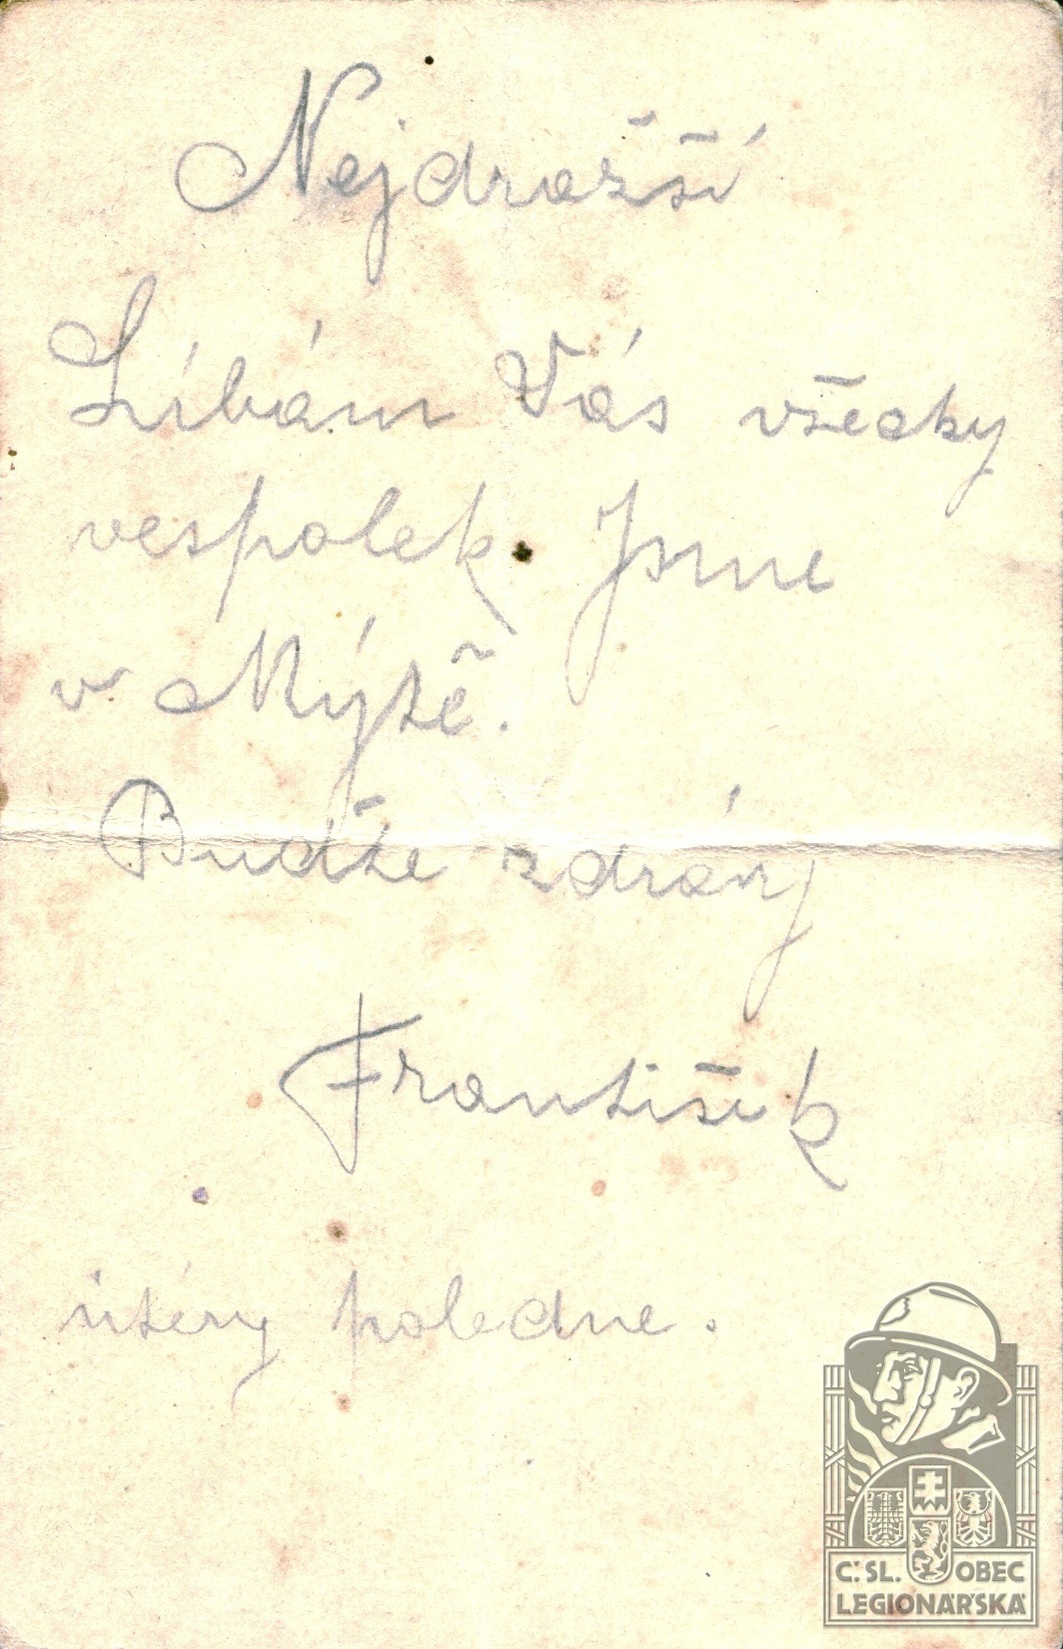 Nejdražší
Líbám Vás všecky
vespolek. Jsme
v Mýtě.
Buďte zdrávy
František
úterý poledne.
Č.SL. OBEC
LEGIONÁŘSKÁ